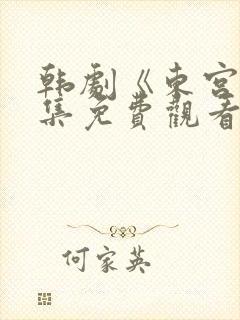 韩劇《東宮
集免費觀看
何家英